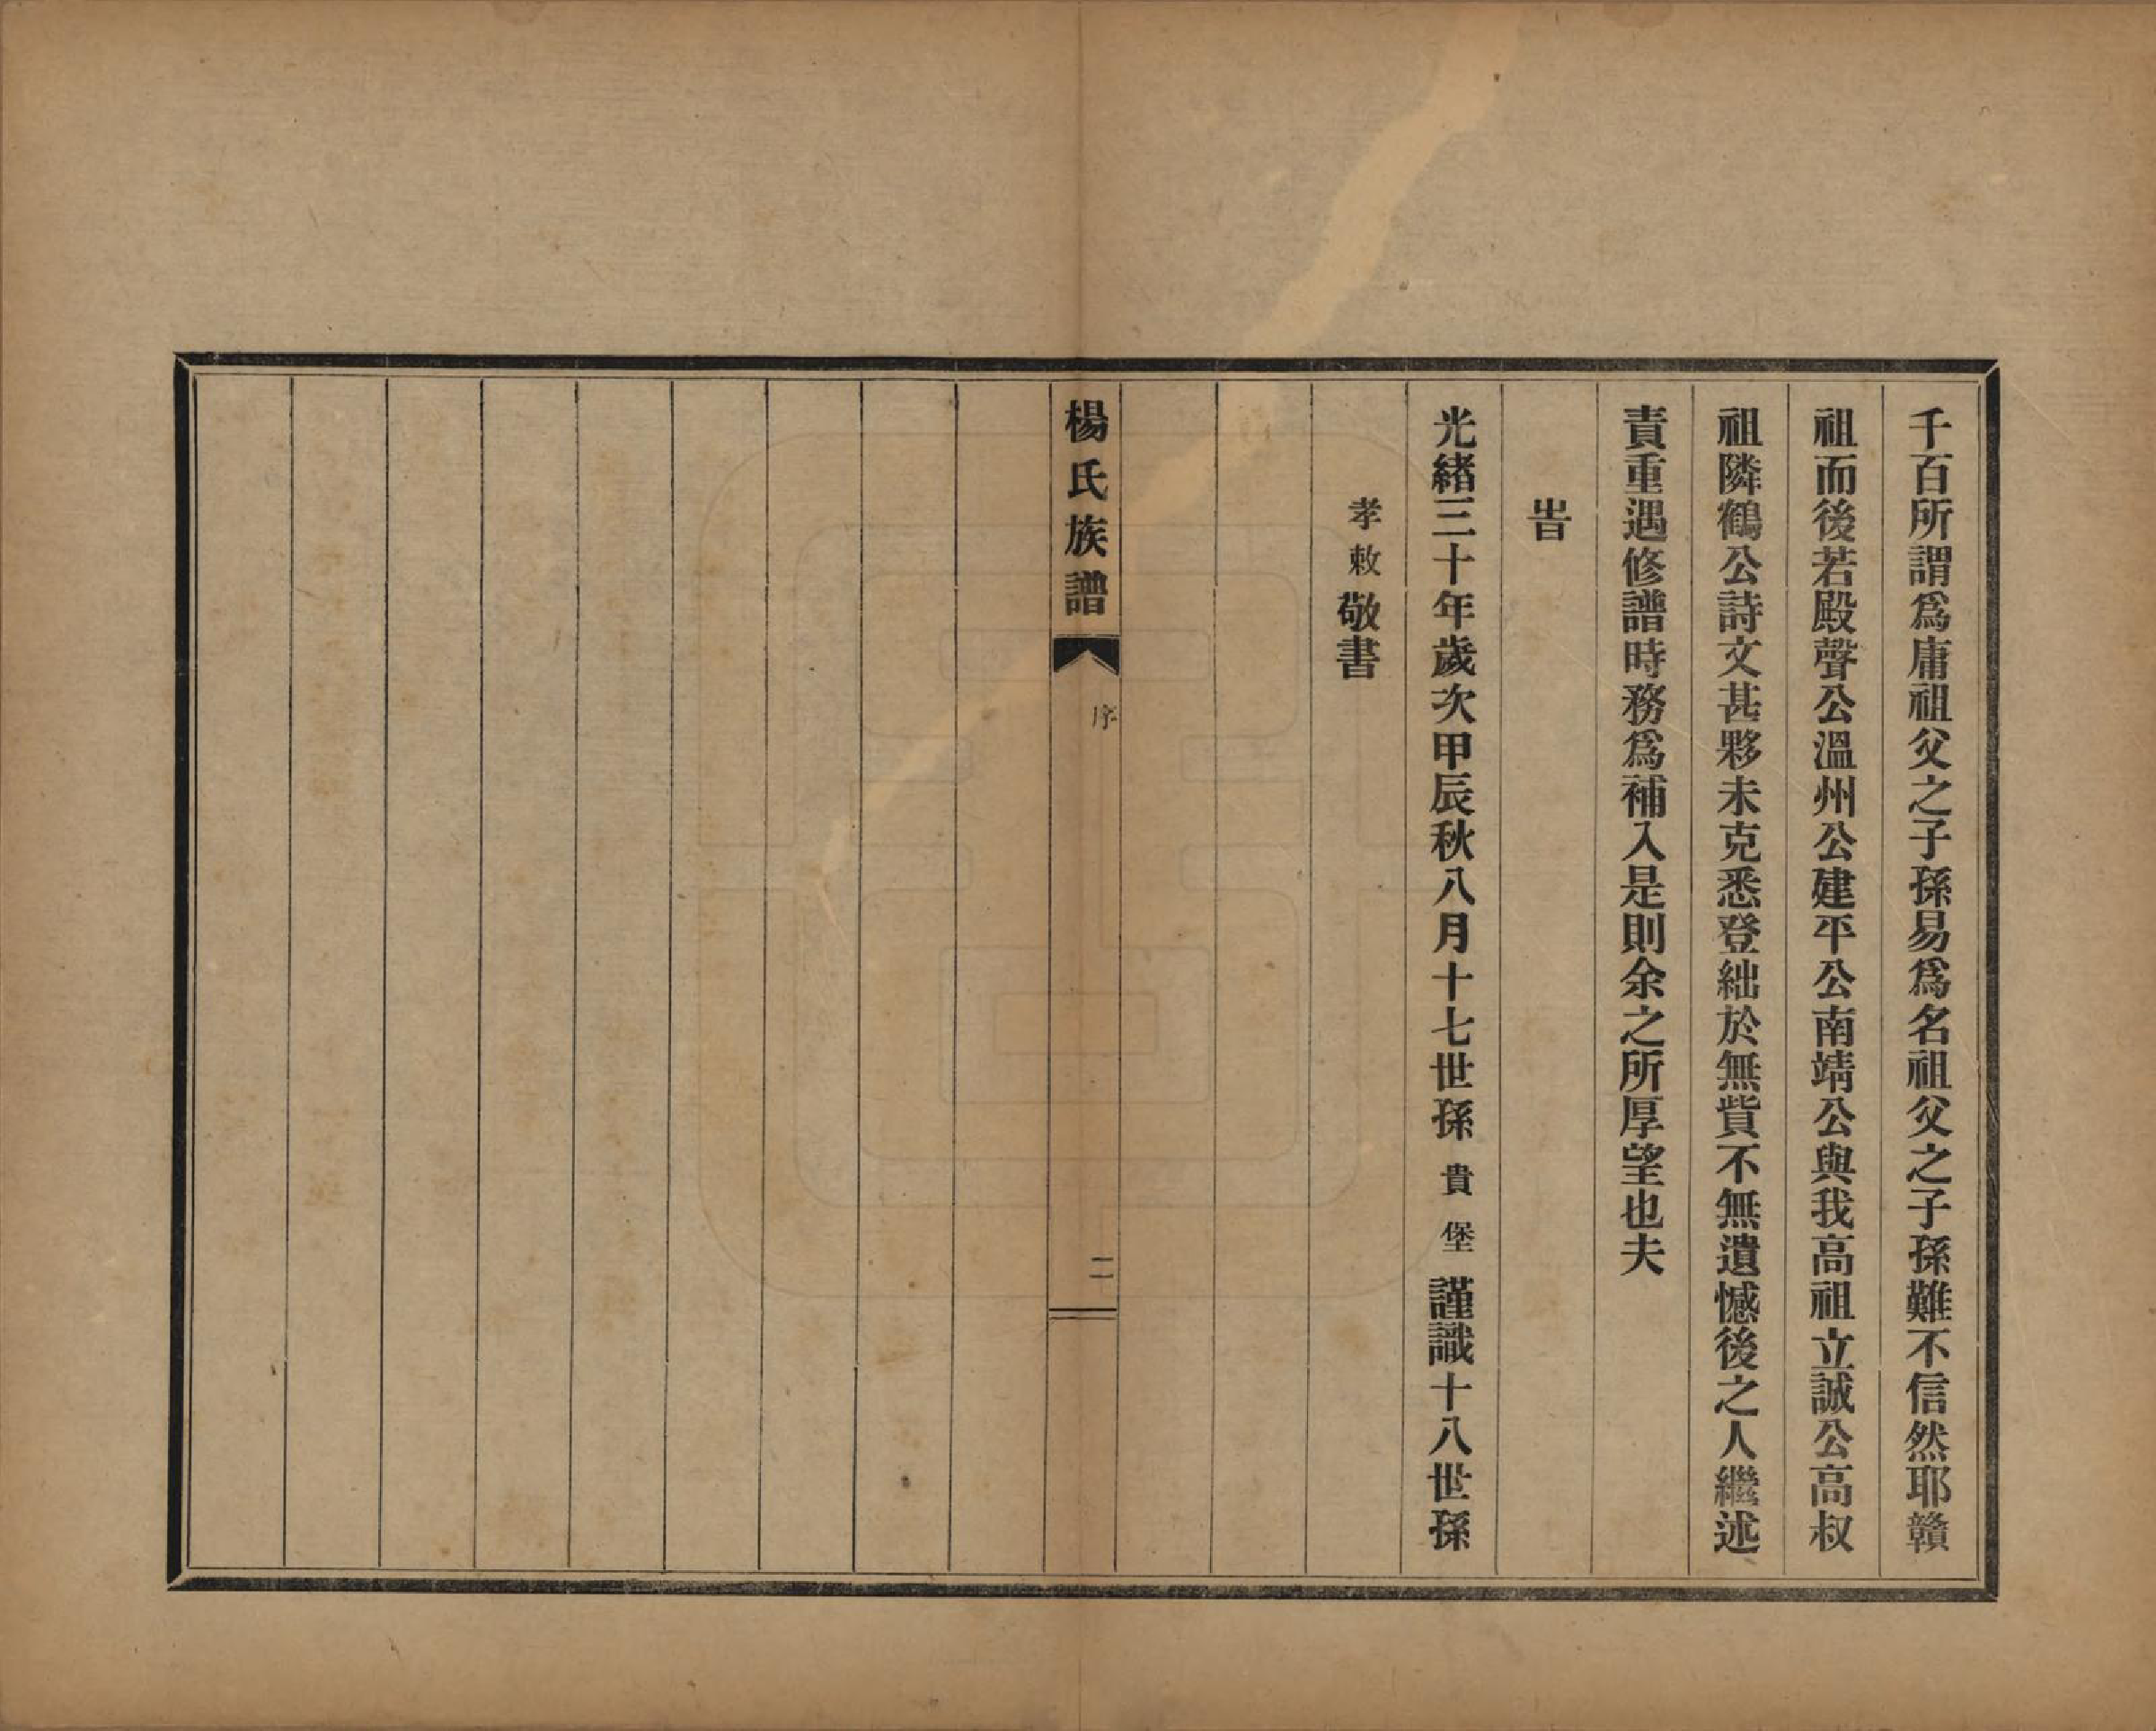 千百所謂爲庸祖父之子孫易爲名祖父之子孫難不信然耶贛
祖而後若殿聲公溫州公建平公南靖公與我高祖立誠公高叔
祖隣鶴公詩文甚夥未克悉登絀於無貲不無遺憾後之人繼述
責重遇修譜時務爲補入是則余之所厚望也夫
旹
光緒三十年歲次甲辰秋八月十七世孫貴堡謹識十八世孫
孝敕敬書
楊氏族譜
序
二